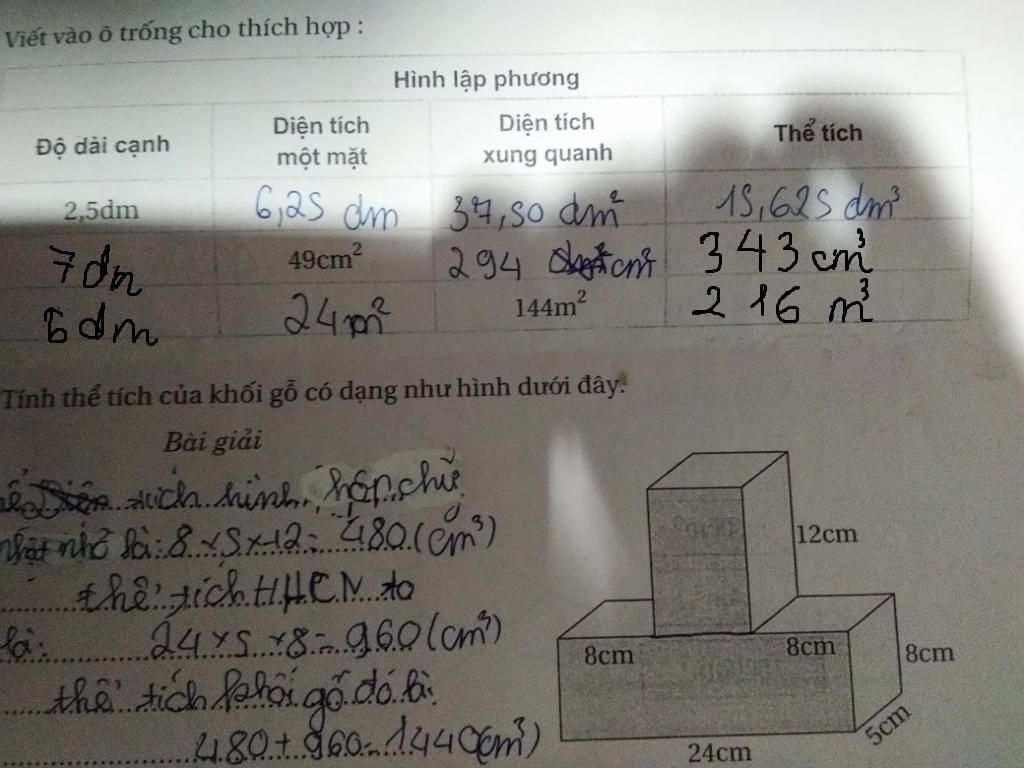 Viết vào ô trống cho thích hợp :
Hình lập phương
Độ dài cạnh
Diện tích một mặt
Diện tích xung quanh
Thể tích
2,5dm 6,25 dm 37,50 dm² 15,625 dm³
7dm 49cm² 294 cm² 343 cm³
6 dm 24m² 144m² 216 m³
Tính thể tích của khối gỗ có dạng như hình dưới đây:
Bài giải
tích hình hộp chữ
nhật nhỏ là: 8 x 5 x 12 = 480 (cm³)
thể tích HHCN to
là: 24 x 5 x 8 = 960 (cm³)
thể tích khối gỗ đó là:
480 + 960 = 1440 (cm³)
12cm
8cm
8cm
8cm
5cm
24cm